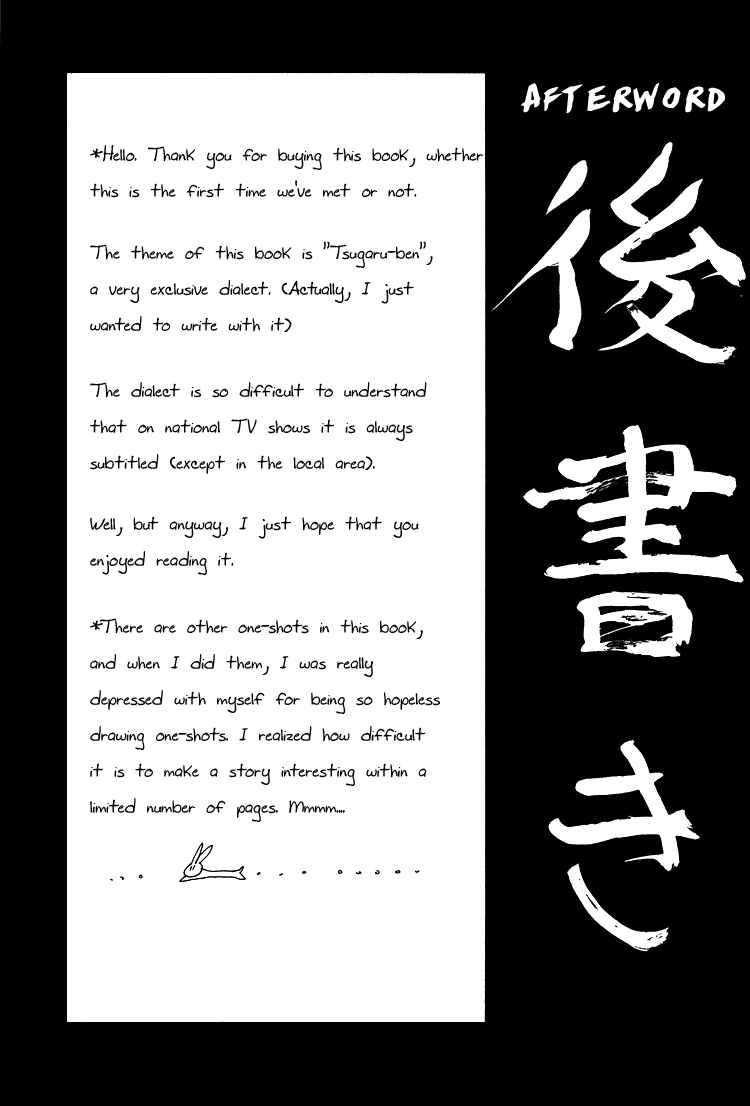 AFTERWORD
後書き
*Hello. Thank you for buying this book, whether
this is the first time we've met or not.
The theme of this book is "Tsugaru-ben",
a very exclusive dialect. (Actually, I just
wanted to write with it)
The dialect is so difficult to understand
that on national TV shows it is always
subtitled (except in the local area).
Well, but anyway, I just hope that you
enjoyed reading it.
*There are other one-shots in this book,
and when I did them, I was really
depressed with myself for being so hopeless
drawing one-shots. I realized how difficult
it is to make a story interesting within a
limited number of pages. Mmmm....